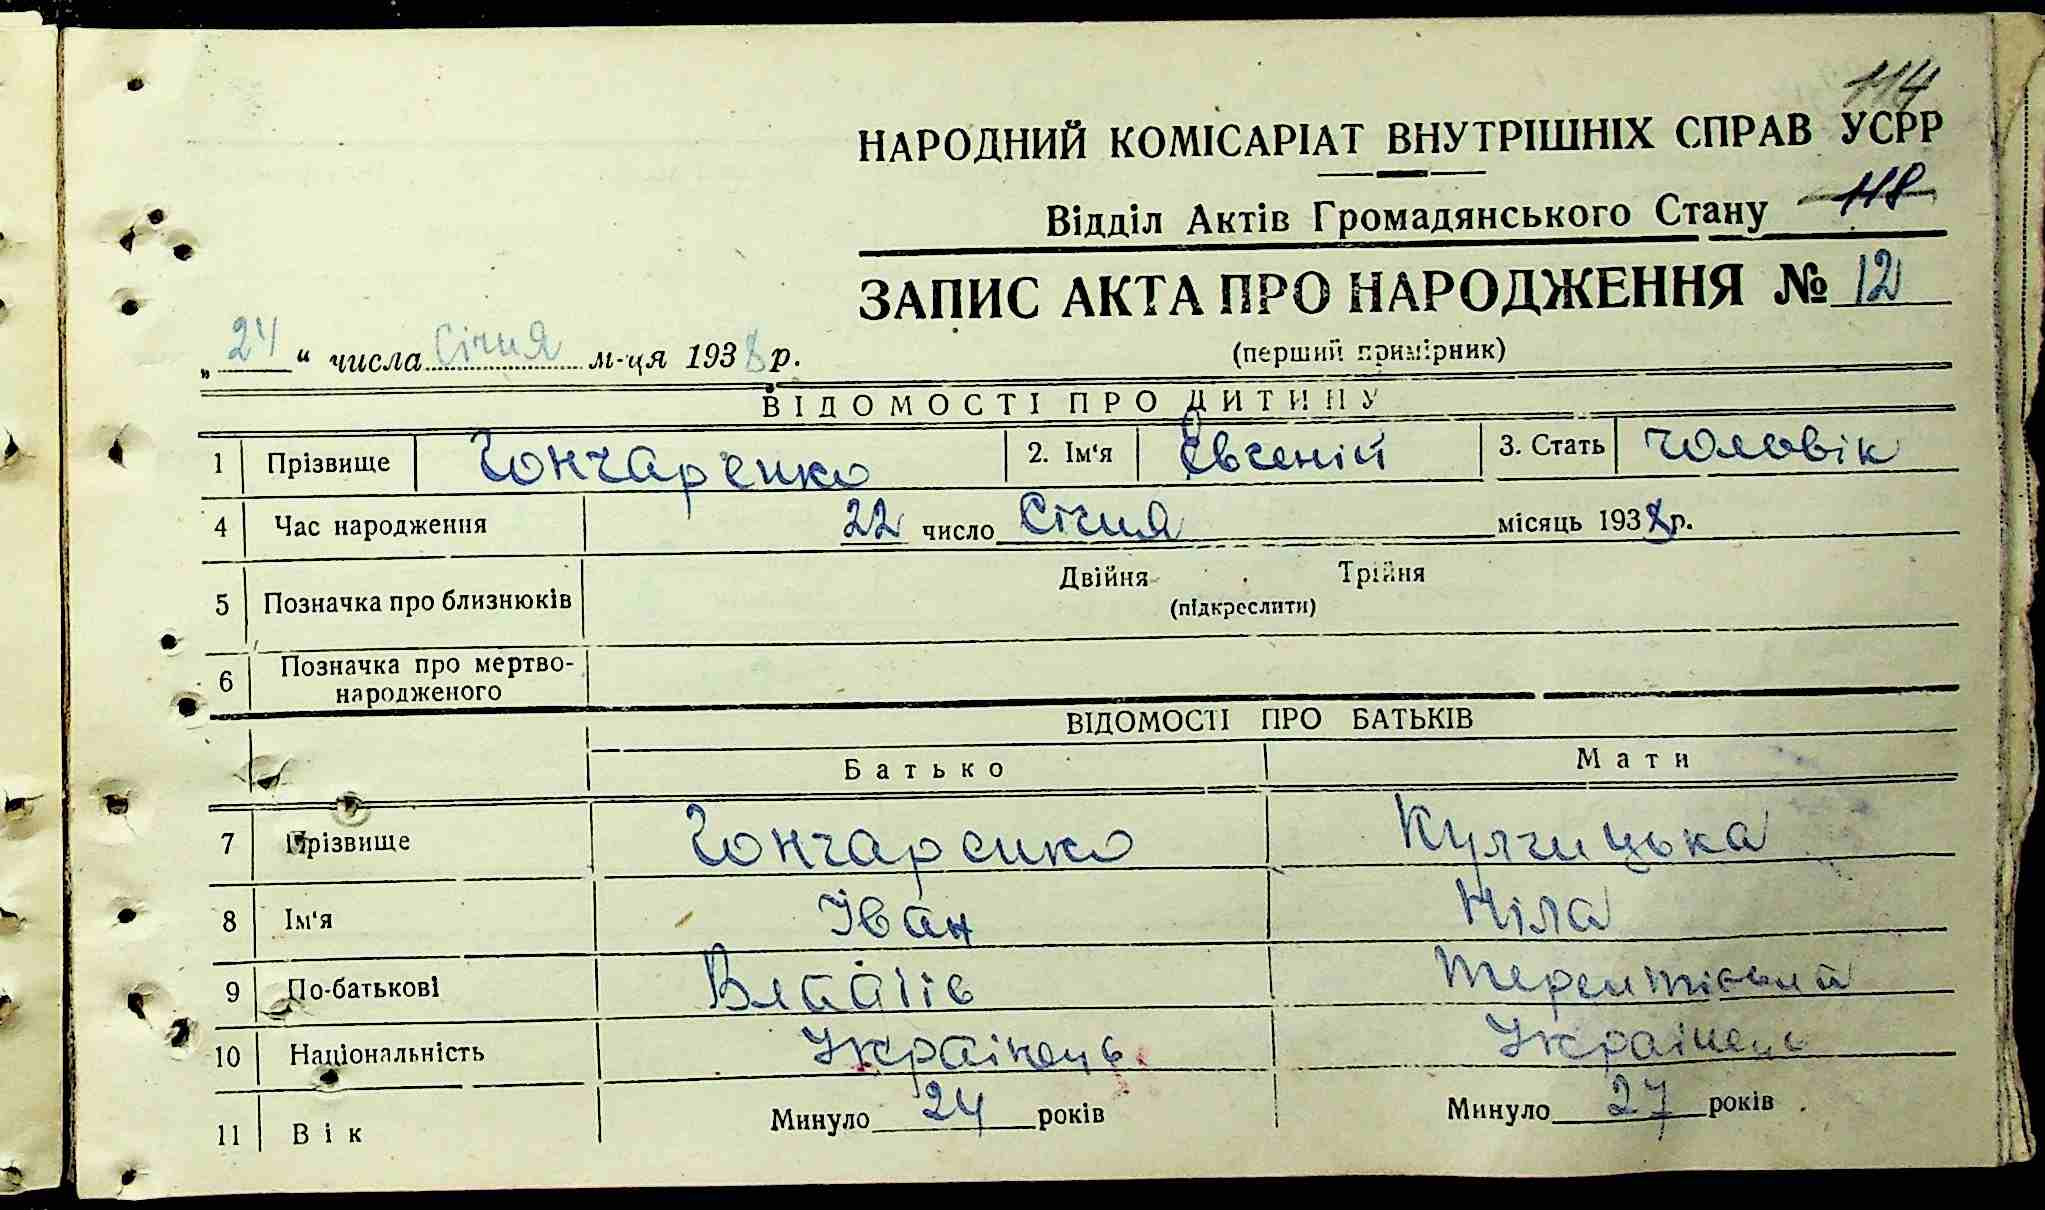 114
НАРОДНИЙ КОМІСАРІАТ ВНУТРІШНІХ СПРАВ УСРР
Відділ Актів Громадянського Стану 118
ЗАПИС АКТА ПРО НАРОДЖЕННЯ № 12
„24“ числа Січня м-ця 1938 р.
(перший примірник)
ВІДОМОСТІ ПРО ДИТИНУ
1 Прізвище Гончаренко 2. Ім‘я Євгеній 3. Стать чоловік
4 Час народження 22 число Січня місяць 1938 р.
5 Позначка про близнюків Двійня Трійня
(підкреслити)
6 Позначка про мертво-
народженого
ВІДОМОСТІ ПРО БАТЬКІВ
Батько Мати
7 Прізвище Гончаренко Кулчицька
8 Ім‘я Іван Ніла
9 По-батькові
10 Національність Українець Українець
11 Вік Минуло 24 років Минуло 27 років